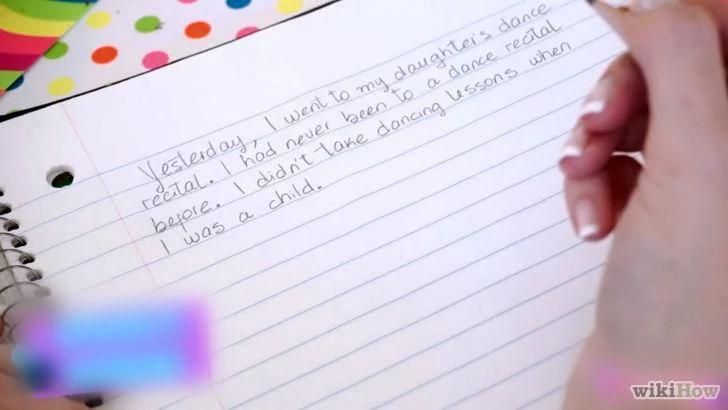 Yesterday, I went to my daughter's dance
recital. I had never been to a dance recital
before. I didn't take dancing lessons when
I was a child.
wikiHow